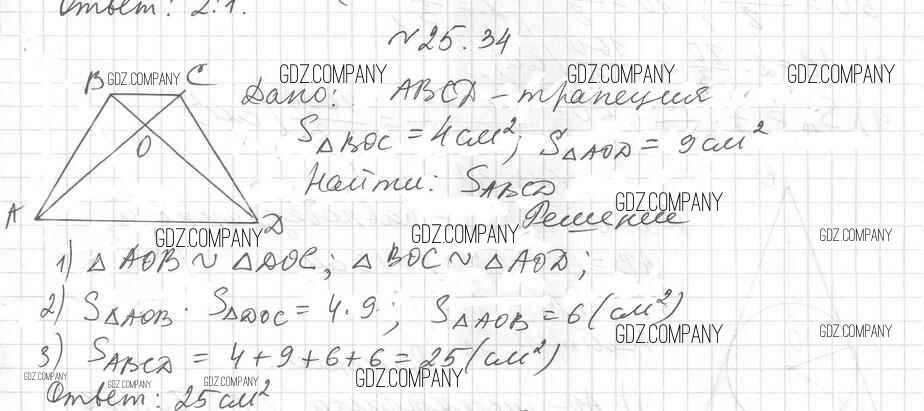 Ответ: 2:1.
№25.34
B GDZ.COMPANY C GDZ.COMPANY GDZ.COMPANY GDZ.COMPANY
Дано: ABCD - трапеция
O S△BOC = 4см²; S△AOD = 9см²
Найти: SABCD GDZ.COMPANY
A D Решение
GDZ.COMPANY GDZ.COMPANY GDZ.COMPANY
1) △AOB ~ △DOC; △BOC ~ △AOD;
2) S△AOB · S△DOC = 4·9; S△AOB = 6(см²)
GDZ.COMPANY GDZ.COMPANY
3) SABCD = 4+9+6+6 = 25(см²)
GDZ.COMPANY GDZ.COMPANY GDZ.COMPANY GDZ.COMPANY
Ответ: 25см²